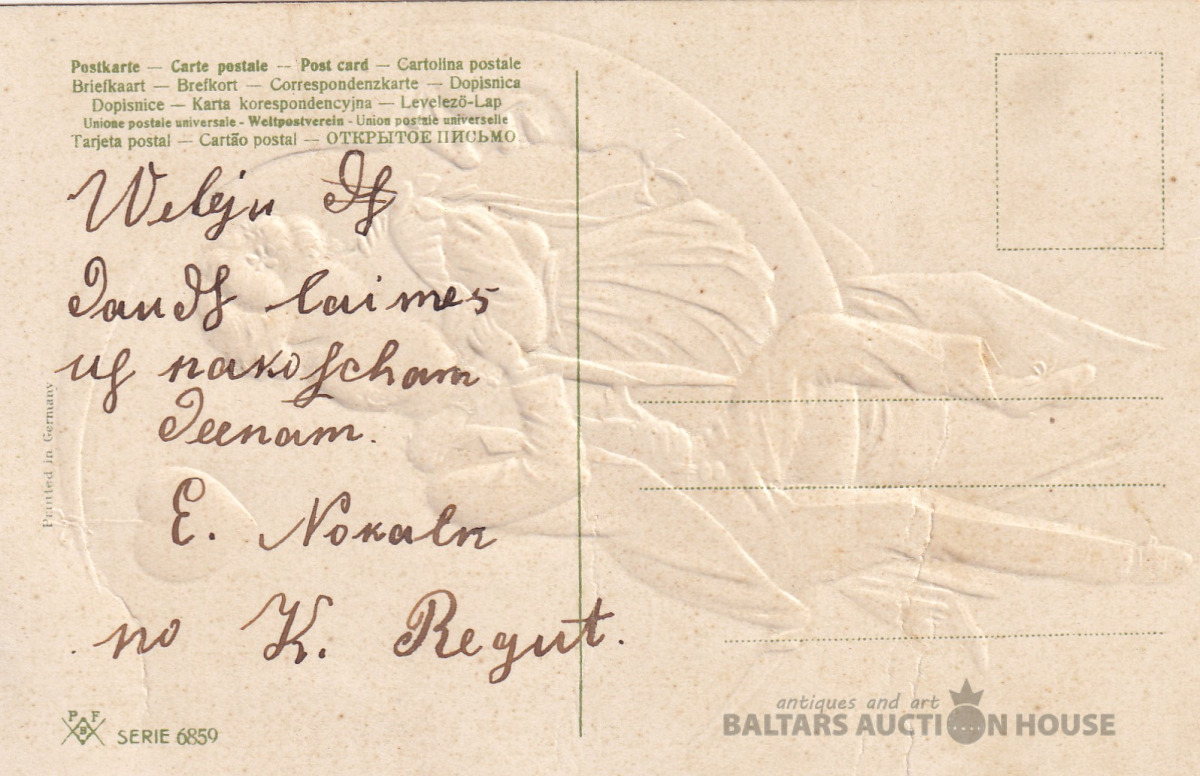 Postkarte — Carte postale — Post card — Cartolina postale
Briefkaart — Brefkort — Correspondenzkarte — Dopisnica
Dopisnice — Karta korespondencyjna — Levelező-Lap
Unione postale universale - Weltpostverein - Union postale universelle
Tarjeta postal — Cartão postal — ОТКРЫТОЕ ПИСЬМО
Weleju
Daudſ laimes
uſ nakoſcham
Deenam.
E. Nokaln
no K. Regut.
Printed in Germany
PFB
SERIE 6859
antiques and art
BALTARS AUCTION HOUSE